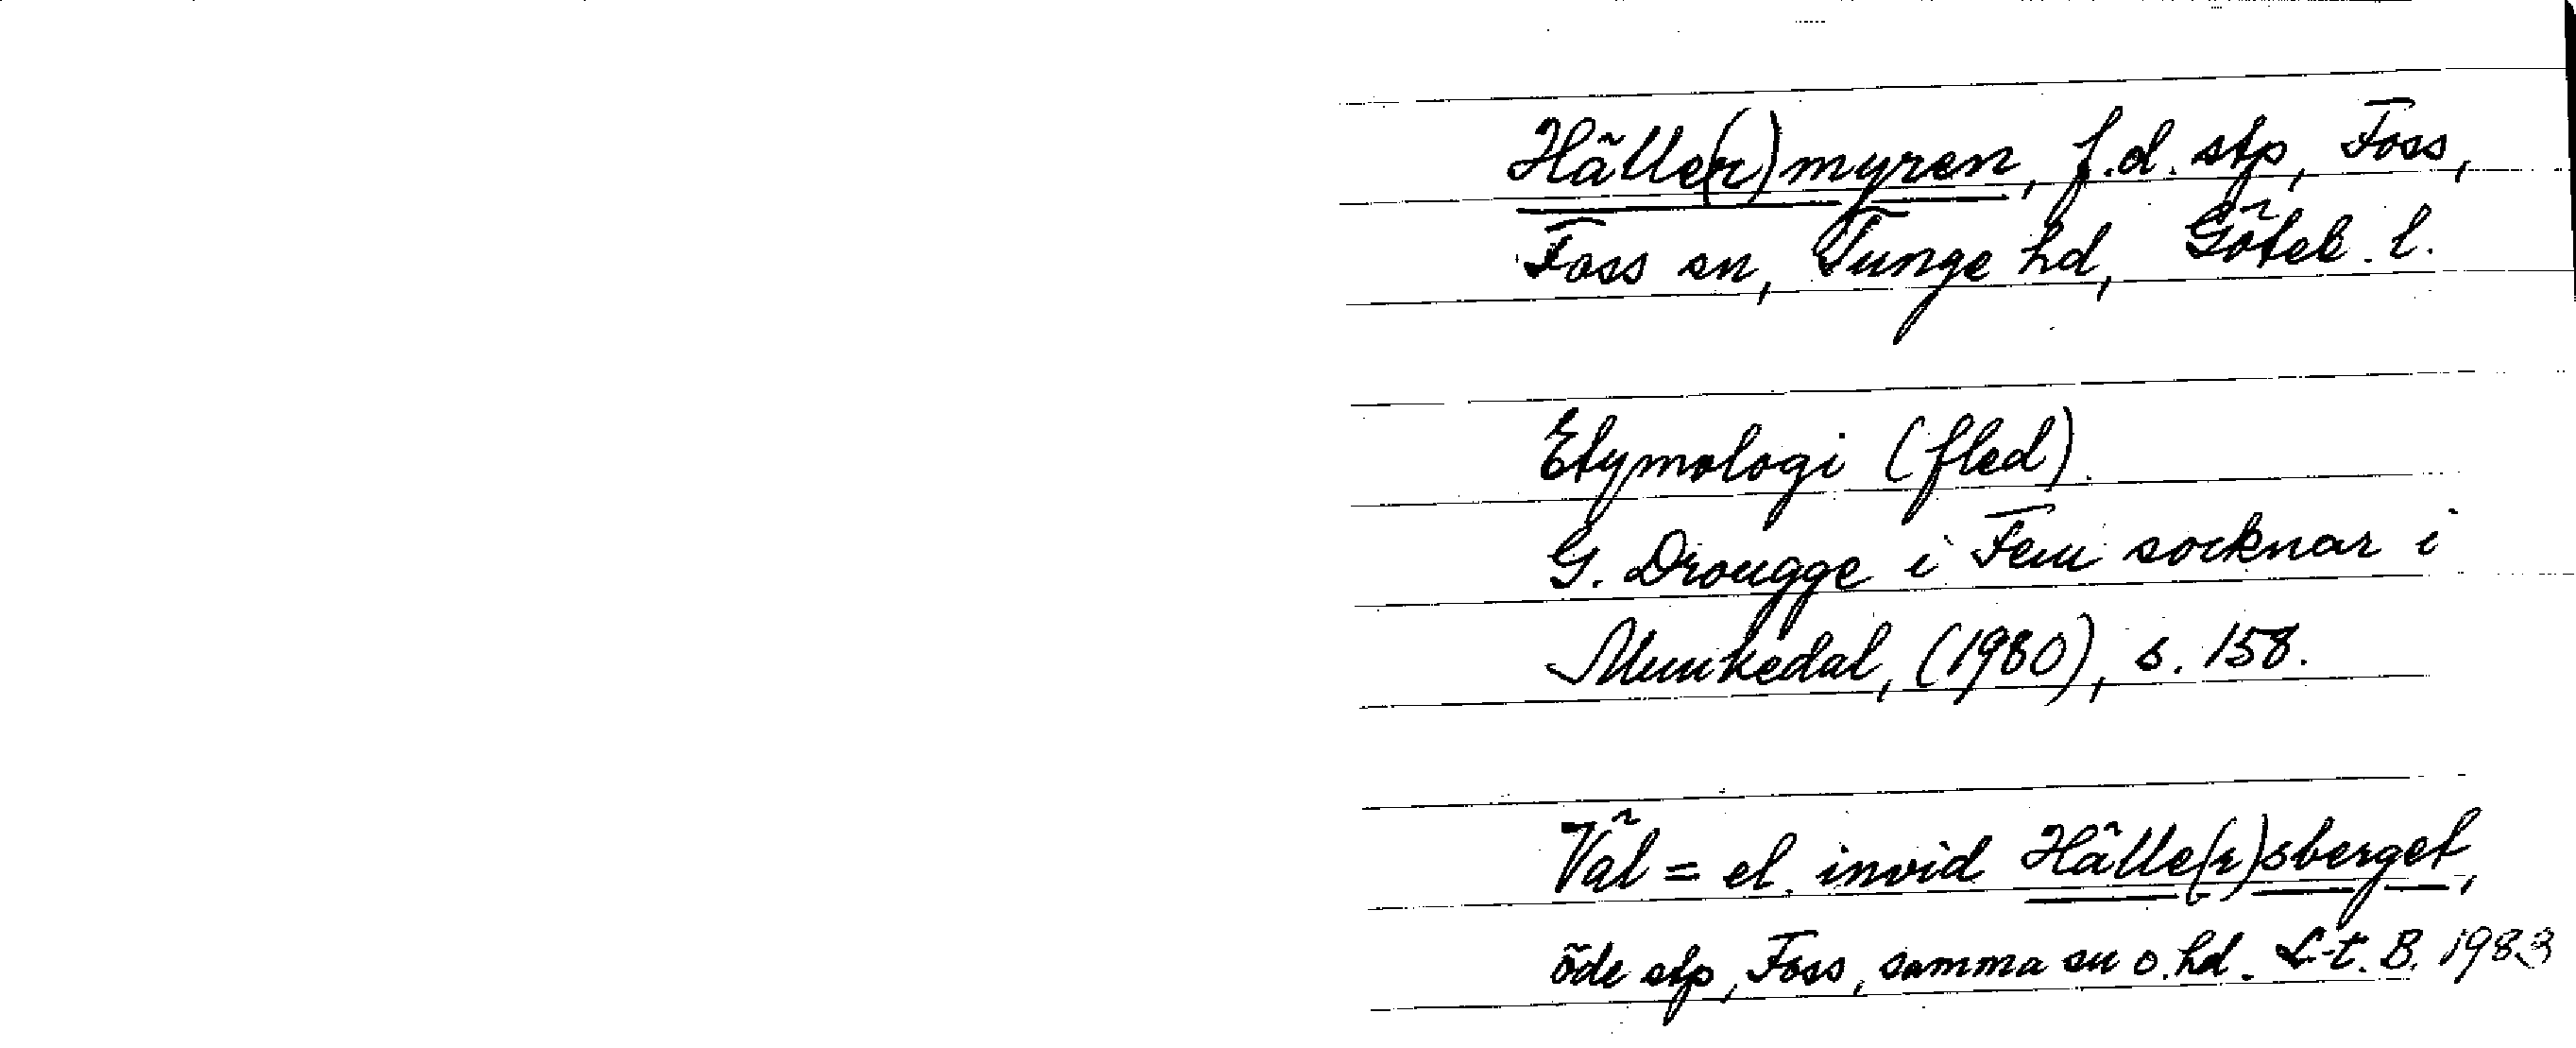 Hälle(r)myren, f.d. stp, Foss,
Foss sn, Tunge hd, Göteb. l.
Etymologi (fled).
G. Drougge i Fem socknar i
Munkedal, (1980), s. 158.
Väl = el. invid Hälle(r)sberget,
öde stp, Foss, samma sn o. hd. L-t. B. 1983